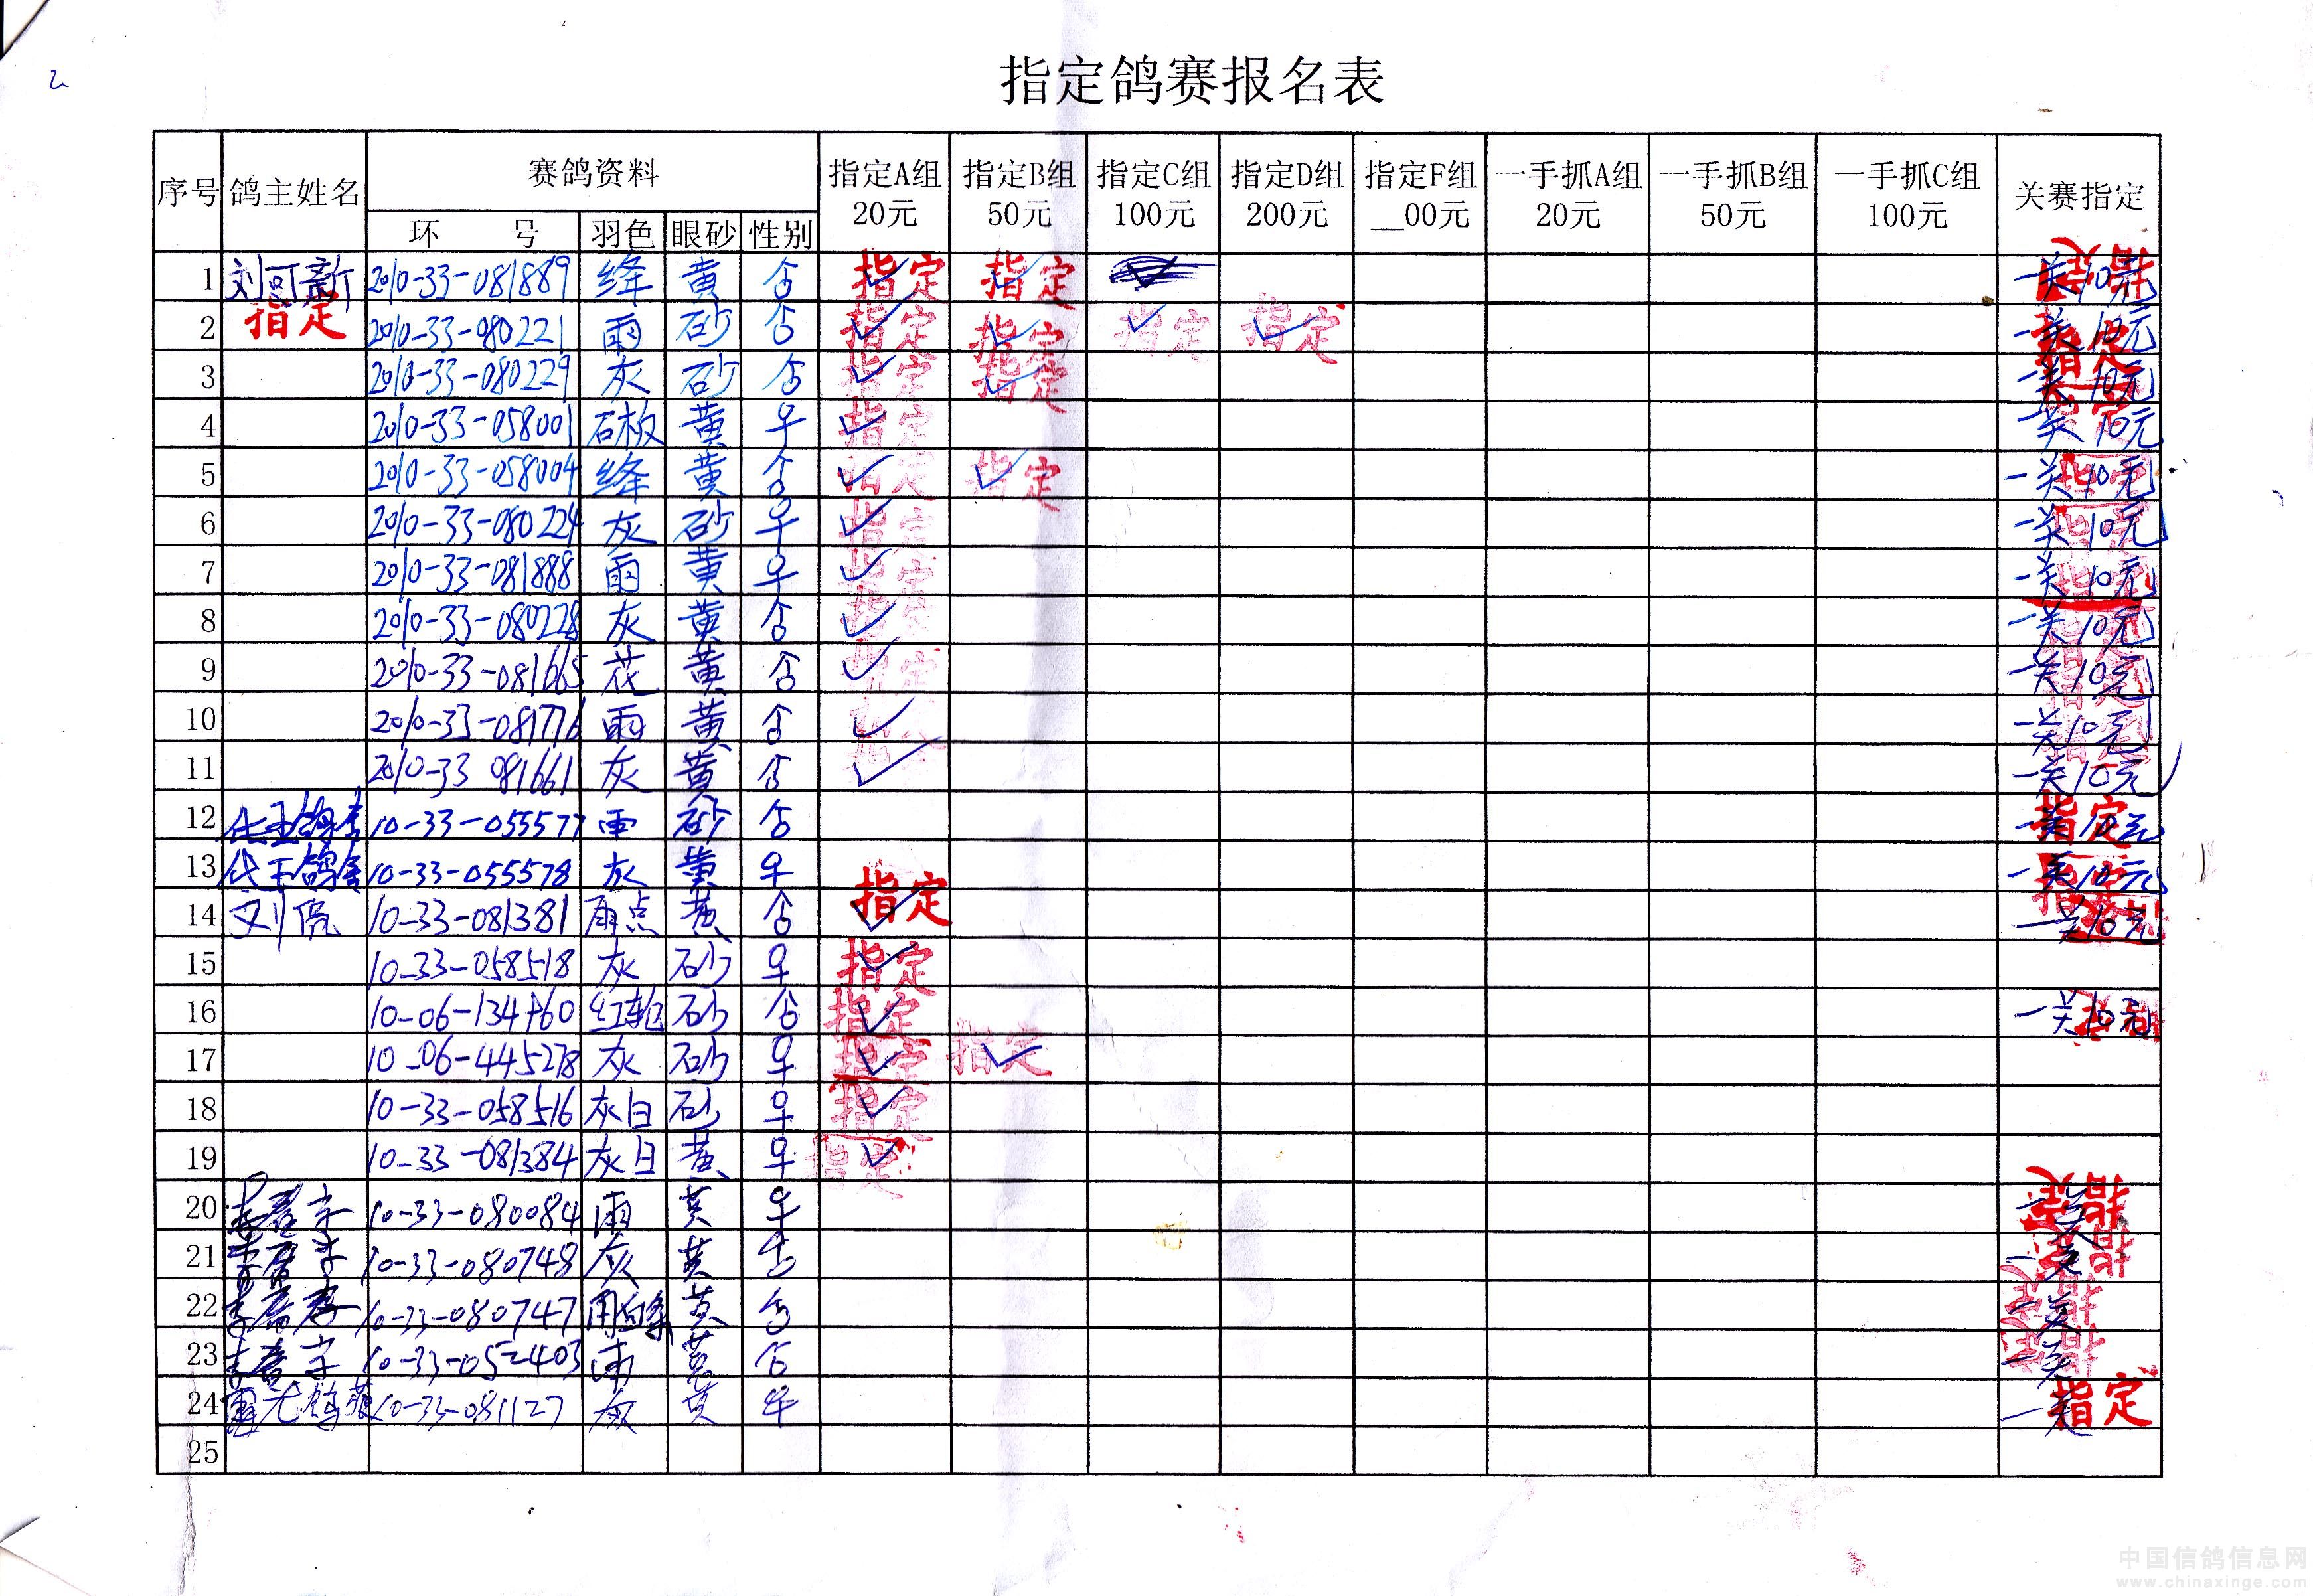 2
指定鸽赛报名表
序号 鸽主姓名 赛鸽资料 指定A组 指定B组 指定C组 指定D组 指定F组 一手抓A组 一手抓B组 一手抓C组 关赛指定
20元 50元 100元 200元 __00元 20元 50元 100元
环 号 羽色 眼砂 性别
1 刘可新 2010-33-081889 绛 黄 合 指定 指定 一关10元
2 指定 2010-33-080221 雨 砂 合 指定 指定 指定 指定 一关10元
3 2010-33-080229 灰 砂 合 指定 指定 指定 一关10元
4 2010-33-058001 石板 黄 早 指定 一关10元
5 2010-33-058004 绛 黄 合 指定 指定 一关10元
6 2010-33-080224 灰 砂 早 指定 一关10元
7 2010-33-081888 雨 黄 早 指定 一关10元
8 2010-33-080228 灰 黄 合 指定 一关10元
9 2010-33-081665 花 黄 合 指定 一关10元
10 2010-33-081776 雨 黄 合 指定 一关10元
11 2010-33 081661 灰 黄 合 一关10元
12 10-33-055577 雨 砂 合 指定 一关10元
13 10-33-055578 灰 黄 早 指定 一关10元
14 刘 10-33-081381 雨点 黄 合 指定 一关10元
15 10-33-058518 灰 砂 早 指定
16 10-06-134760 红轮 砂 合 指定 一关10元
17 10-06-445278 灰 砂 早 指定 指定
18 10-33-058516 灰白 砂 早 指定
19 10-33-081384 灰白 黄 早 指定
20 10-33-080084 雨 黄 早 指定 一关
21 10-33-080748 灰 黄 合 指定 一关
22 10-33-080747 黄 合 指定 一关
23 10-33-052403 雨 黄 合 指定 一关
24 10-33-081127 灰 黄 早 指定 一关
25
中国信鸽信息网
www.chinaxinge.com